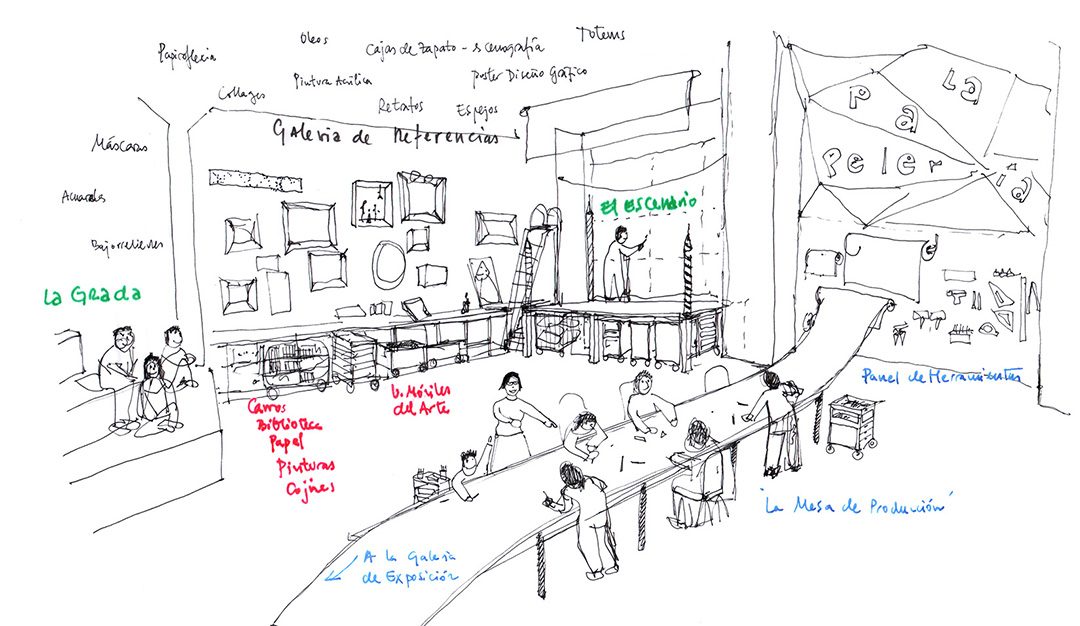 Papiroflexia
Óleos
Cajas de Zapato - scenografía
Totems
Collages
Pintura Acrílica
poster Diseño Gráfico
Retratos
Espejos
Galería de Referencias
Máscaras
Acuarelas
Bajorrelieves
La Grada
El Escenario
La
Pa
peler
ía
Carros
Biblioteca
Papel
Pinturas
Cojines
U. Móviles
del Arte
Panel de Herramientas
"La Mesa de Producción"
A la Galería
de Exposición